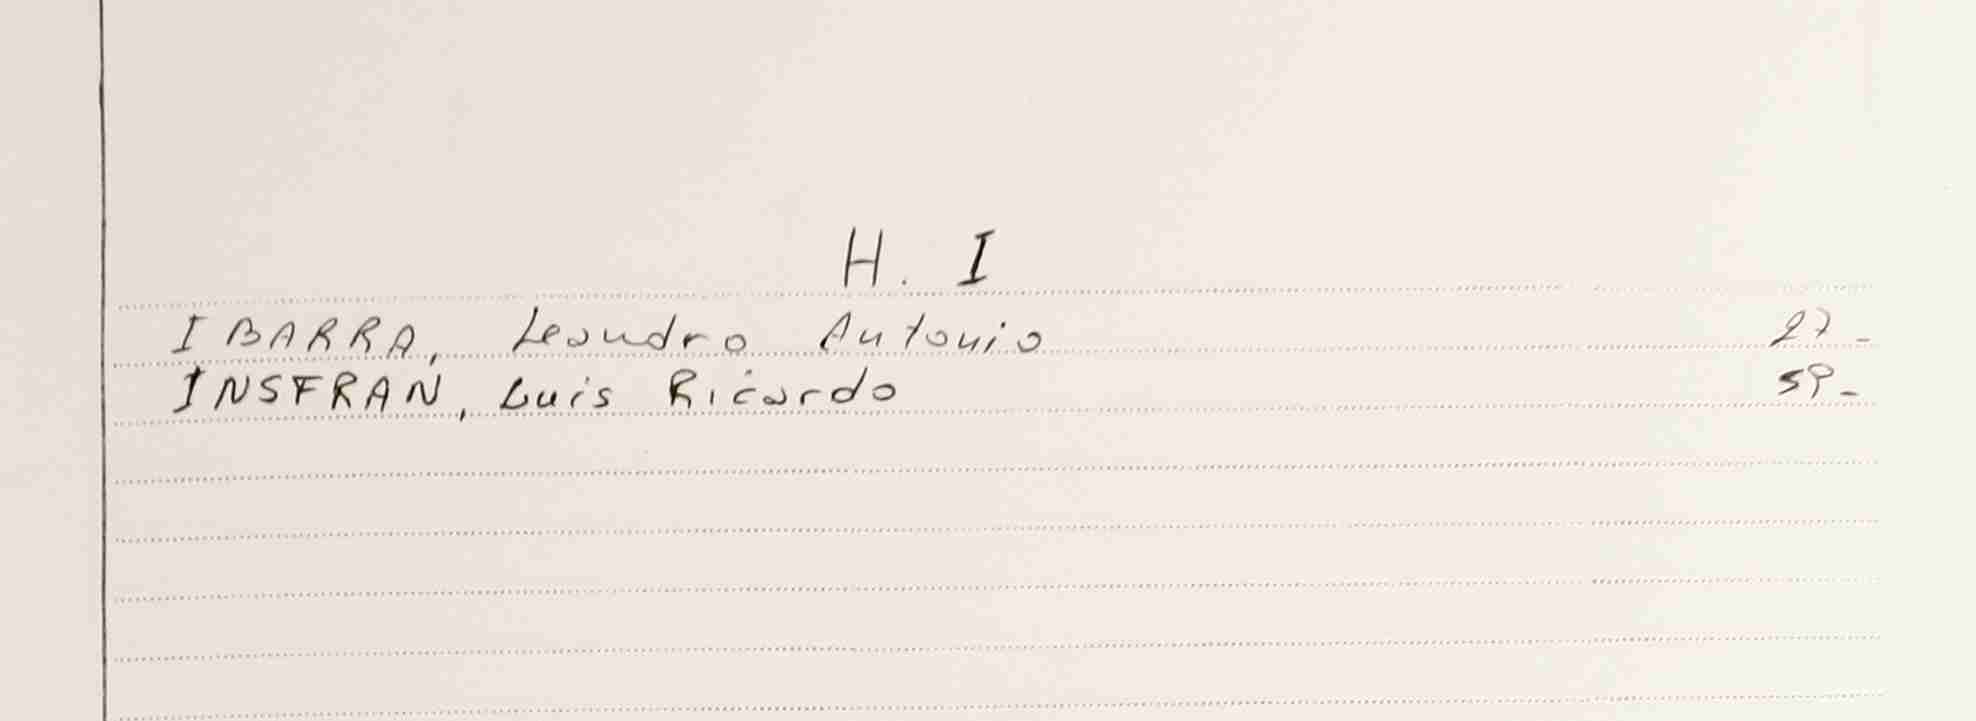 H. I
IBARRA, Leandro Antonio 27-
INSFRAN, Luis Ricardo 59-